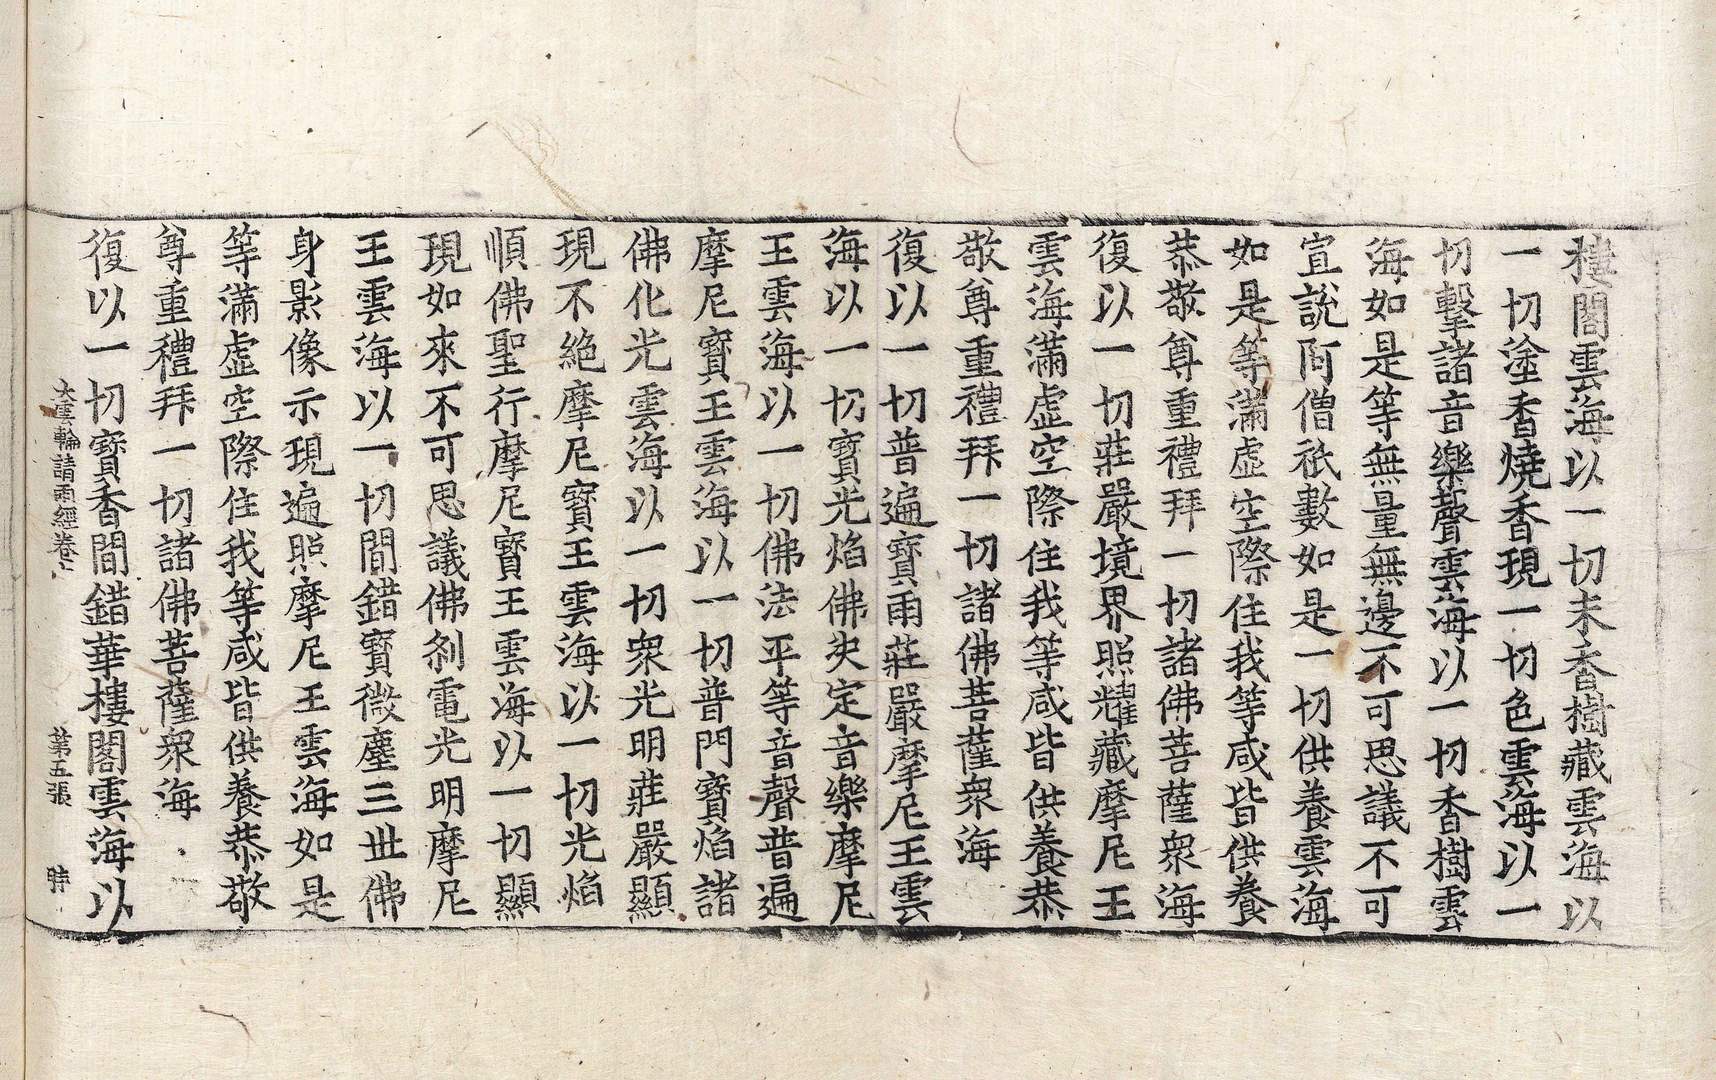 樓閣雲海以一切末香樹藏雲海以
一切塗香燒香現一切色雲海以一
切擊諸音樂聲雲海以一切香樹雲
海如是等無量無邊不可思議不可
宣說阿僧祇數如是一切供養雲海
如是等滿虛空際住我等咸皆供養
恭敬尊重禮拜一切諸佛菩薩衆海
復以一切莊嚴境界照耀藏摩尼王
雲海滿虛空際住我等咸皆供養恭
敬尊重禮拜一切諸佛菩薩衆海
復以一切普遍寶雨莊嚴摩尼王雲
海以一切寶光焰佛決定音樂摩尼
王雲海以一切佛法平等音聲普遍
摩尼寶王雲海以一切普門寶焰諸
佛化光雲海以一切衆光明莊嚴顯
現不絶摩尼寶王雲海以一切光焰
順佛聖行摩尼寶王雲海以一切顯
現如來不可思議佛刹電光明摩尼
王雲海以一切間錯寶微塵三世佛
身影像示現遍照摩尼王雲海如是
等滿虛空際住我等咸皆供養恭敬
尊重禮拜一切諸佛菩薩衆海
復以一切寶香間錯華樓閣雲海以
大雲輪請雨經卷上 第五張 時